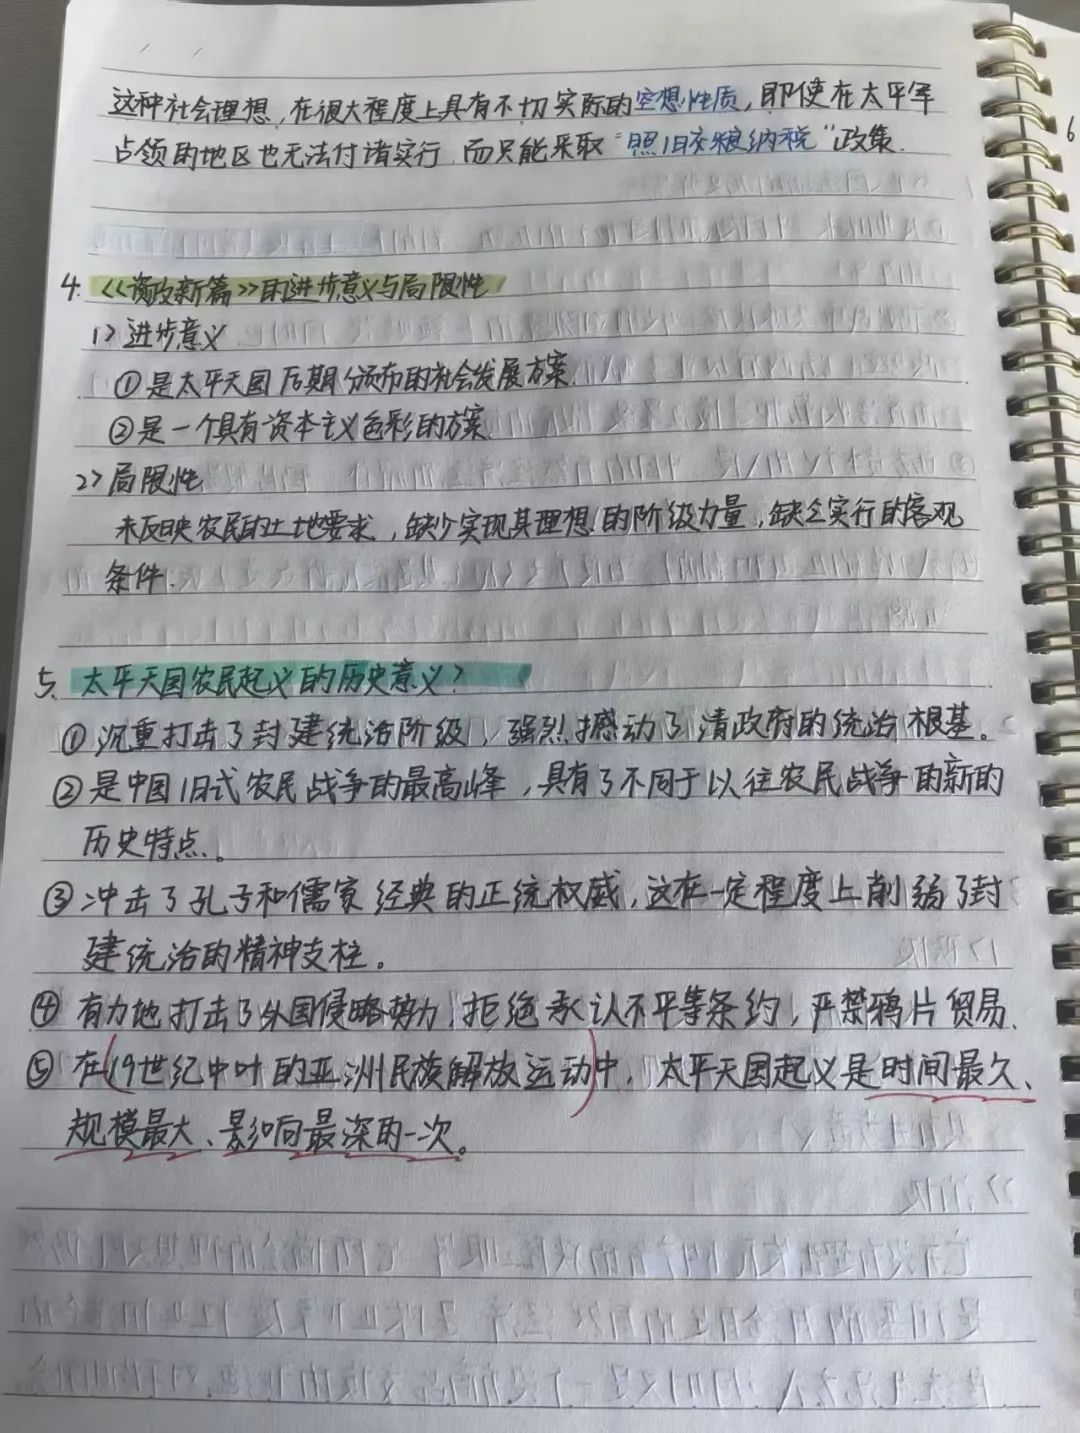 这种社会理想,在很大程度上具有不切实际的空想性质,即使在太平军
占领的地区也无法付诸实行.而只能采取"照旧交粮纳税"政策.
4.《资政新篇》的进步意义与局限性
1>进步意义
①是太平天国后期颁布的社会发展方案.
②是一个具有资本主义色彩的方案.
2>局限性
未反映农民的土地要求,缺少实现其理想的阶级力量,缺乏实行的客观
条件.
5.太平天国农民起义的历史意义?
①沉重打击了封建统治阶级,强烈撼动了清政府的统治根基。
②是中国旧式农民战争的最高峰,具有了不同于以往农民战争的新的
历史特点。
③冲击了孔子和儒家经典的正统权威,这在一定程度上削弱了封
建统治的精神支柱。
④有力地打击了外国侵略势力,拒绝承认不平等条约,严禁鸦片贸易.
⑤在(19世纪中叶的亚洲民族解放运动)中,太平天国起义是时间最久、
规模最大、影响最深的一次。
6